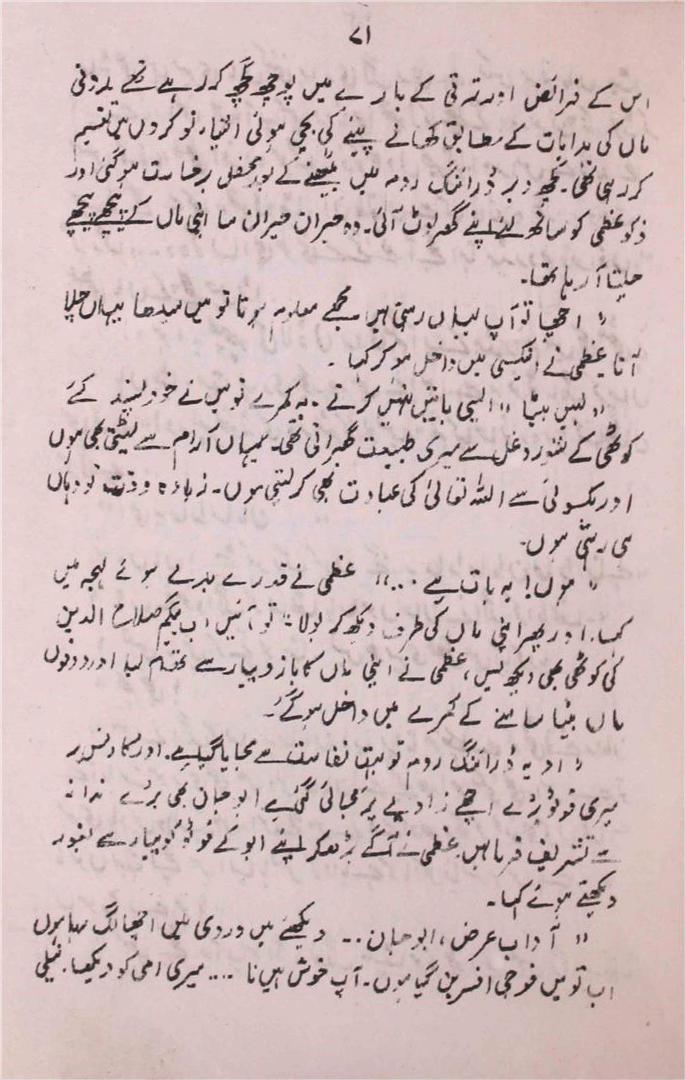 ۷۱
اس کے فرائض اور ترقی کے بارے میں پوچھ گچھ کر رہے تھے
ماں کی ہدایات کے مطابق کھانے پینے کی بچی ہوئی اشیاء نوکروں میں تقسیم
کر رہی تھی۔ کچھ دیر ڈرائنگ روم میں بیٹھنے کے بعد محفل برخاست ہو گئی اور
ذکو عظمی کو ساتھ لئے اپنے گھر لوٹ آئی۔ وہ حیران حیران سا اپنی ماں کے پیچھے پیچھے
چلتا آ رہا تھا۔
" اچھا تو آپ یہاں رہتی ہیں مجھے معلوم ہوتا تو میں سیدھا یہاں چلا
آتا عظمی نے انیکسی میں داخل ہو کر کہا۔
" بس بیٹا " ایسی باتیں نہیں کرتے۔ یہ کمرے تو میں نے خود پسند کئے
کوٹھی کے شور و غل سے میری طبیعت گھبراتی تھی۔ یہاں آرام سے لیٹتی بھی ہوں
اور یکسوئی سے اللہ تعالیٰ کی عبادت بھی کر لیتی ہوں۔ زیادہ وقت تو وہاں
ہی رہتی ہوں۔
" ہوں! یہ بات ہے ..." عظمی نے قدرے بدلے ہوئے لہجہ میں
کہا۔ اور پھر اپنی ماں کی طرف دیکھ کر بولا " تو آئیں اب بیگم صلاح الدین
کی کوٹھی بھی دیکھ لیں، عظمی نے اپنی ماں کا بازو پیار سے تھام لیا اور دونوں
ماں بیٹا سامنے کے کمرے میں داخل ہو گئے۔
" او یہ ڈرائنگ روم تو بہت نفاست سے سجایا گیا ہے۔ اور کارنس پر
میری فوٹو بڑے اچھے زاویے پر سجائی گئی ہے ابو جان بھی بڑے
سے تشریف فرما ہیں عظمی نے آگے بڑھ کر اپنے ابو کے فوٹو کو پیار سے بغور
دیکھتے ہوئے کہا۔
" آداب عرض، ابو جان .. دیکھئے میں وردی میں اچھا لگ رہا ہوں
اب تو میں فوجی افسر بن گیا ہوں۔ آپ خوش ہیں نا .... میری امی کو دیکھا۔